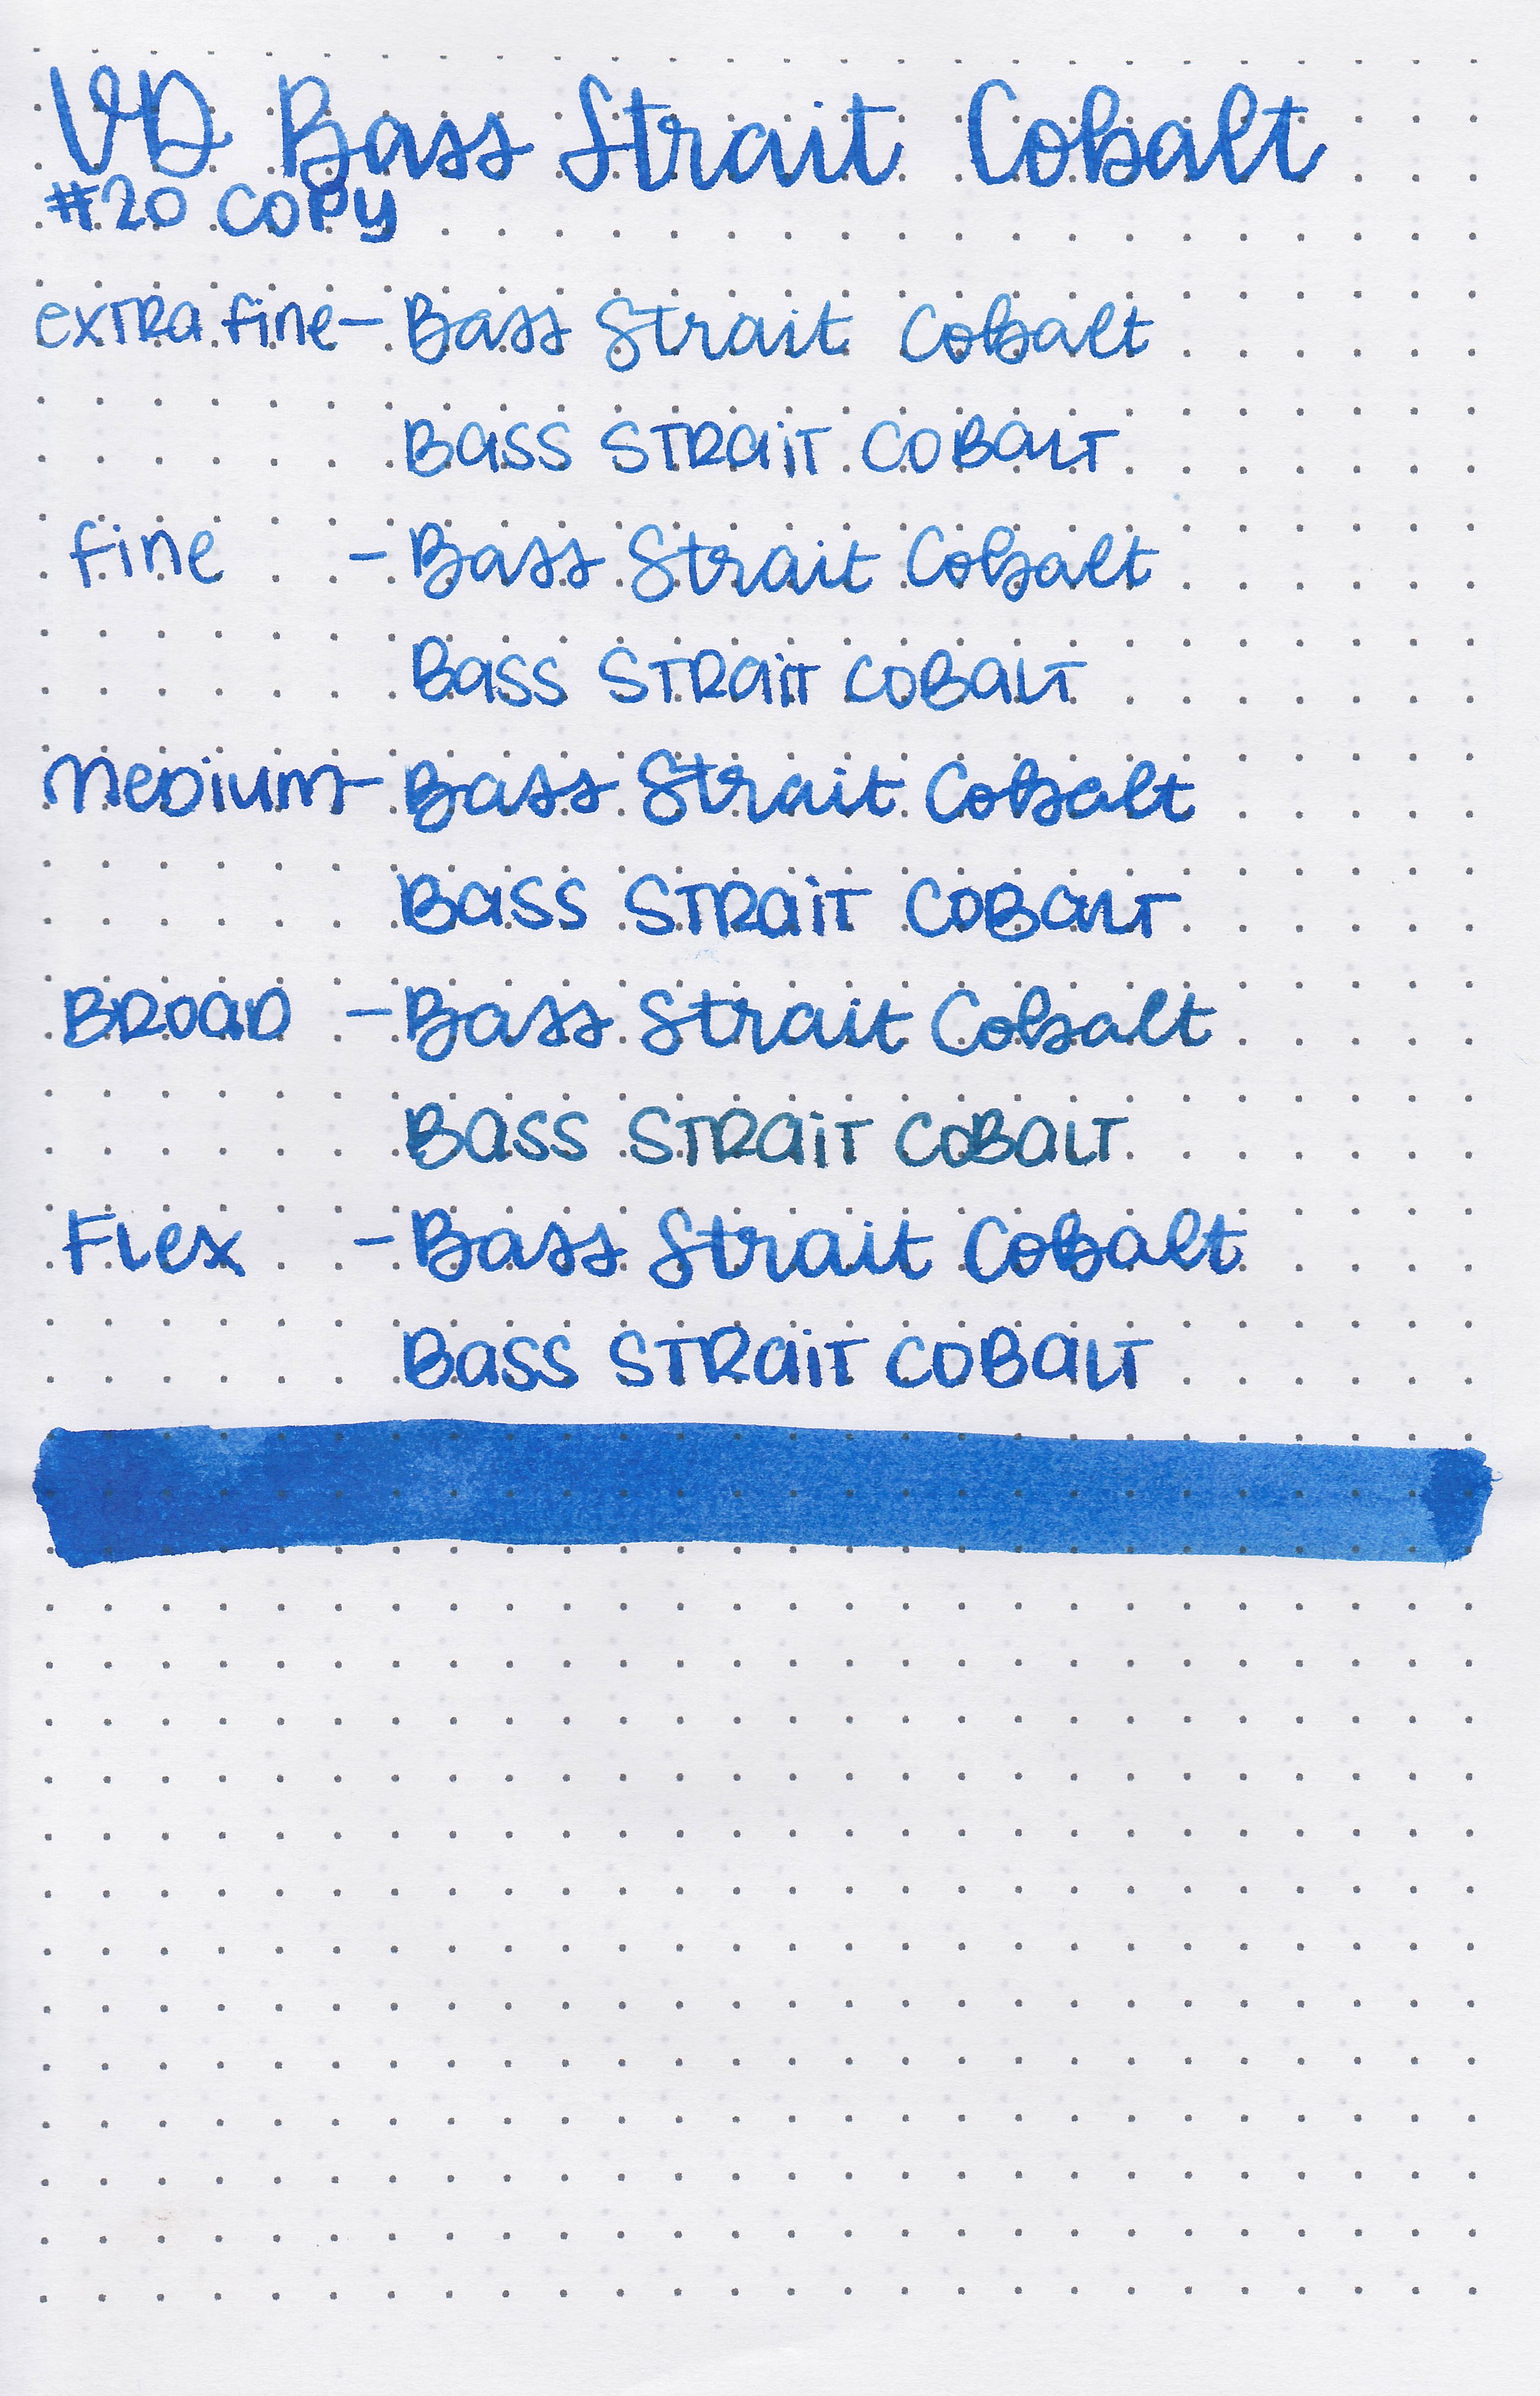 VD Bass Strait Cobalt
#20 COPY
extra fine - Bass Strait Cobalt
BASS STRAIT COBALT
fine - Bass Strait Cobalt
BASS STRAIT COBALT
Medium - Bass Strait Cobalt
BASS STRAIT COBALT
BROAD - Bass Strait Cobalt
BASS STRAIT COBALT
Flex - Bass Strait Cobalt
BASS STRAIT COBALT